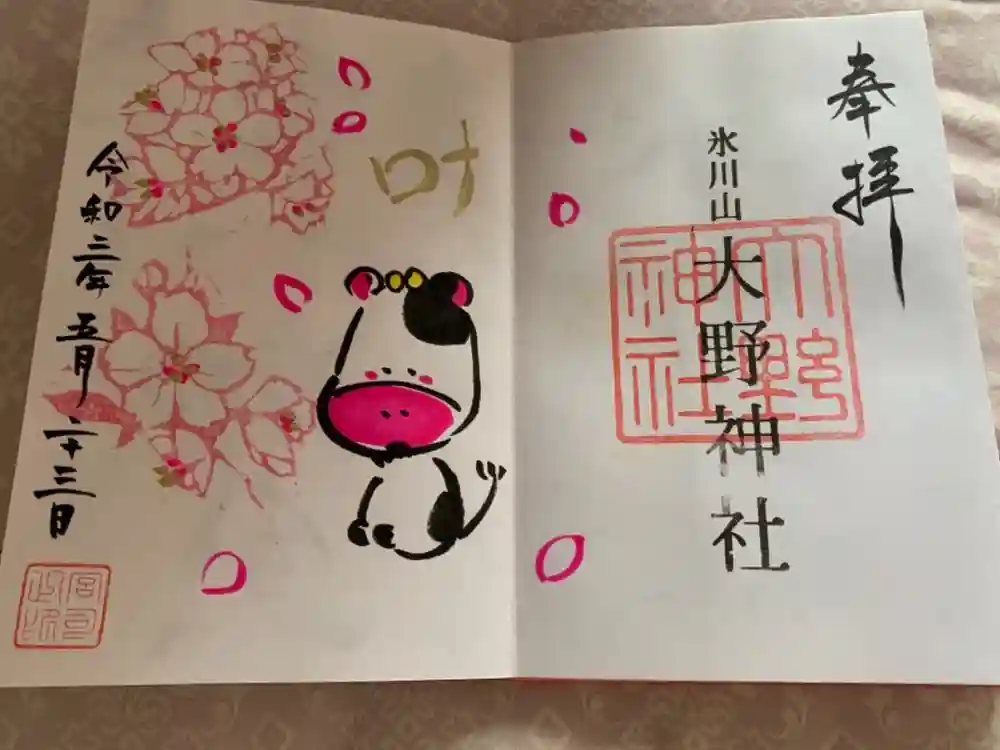 奉拝
氷川山
大野神社
大野
神社
叶
令和三年五月二十三日